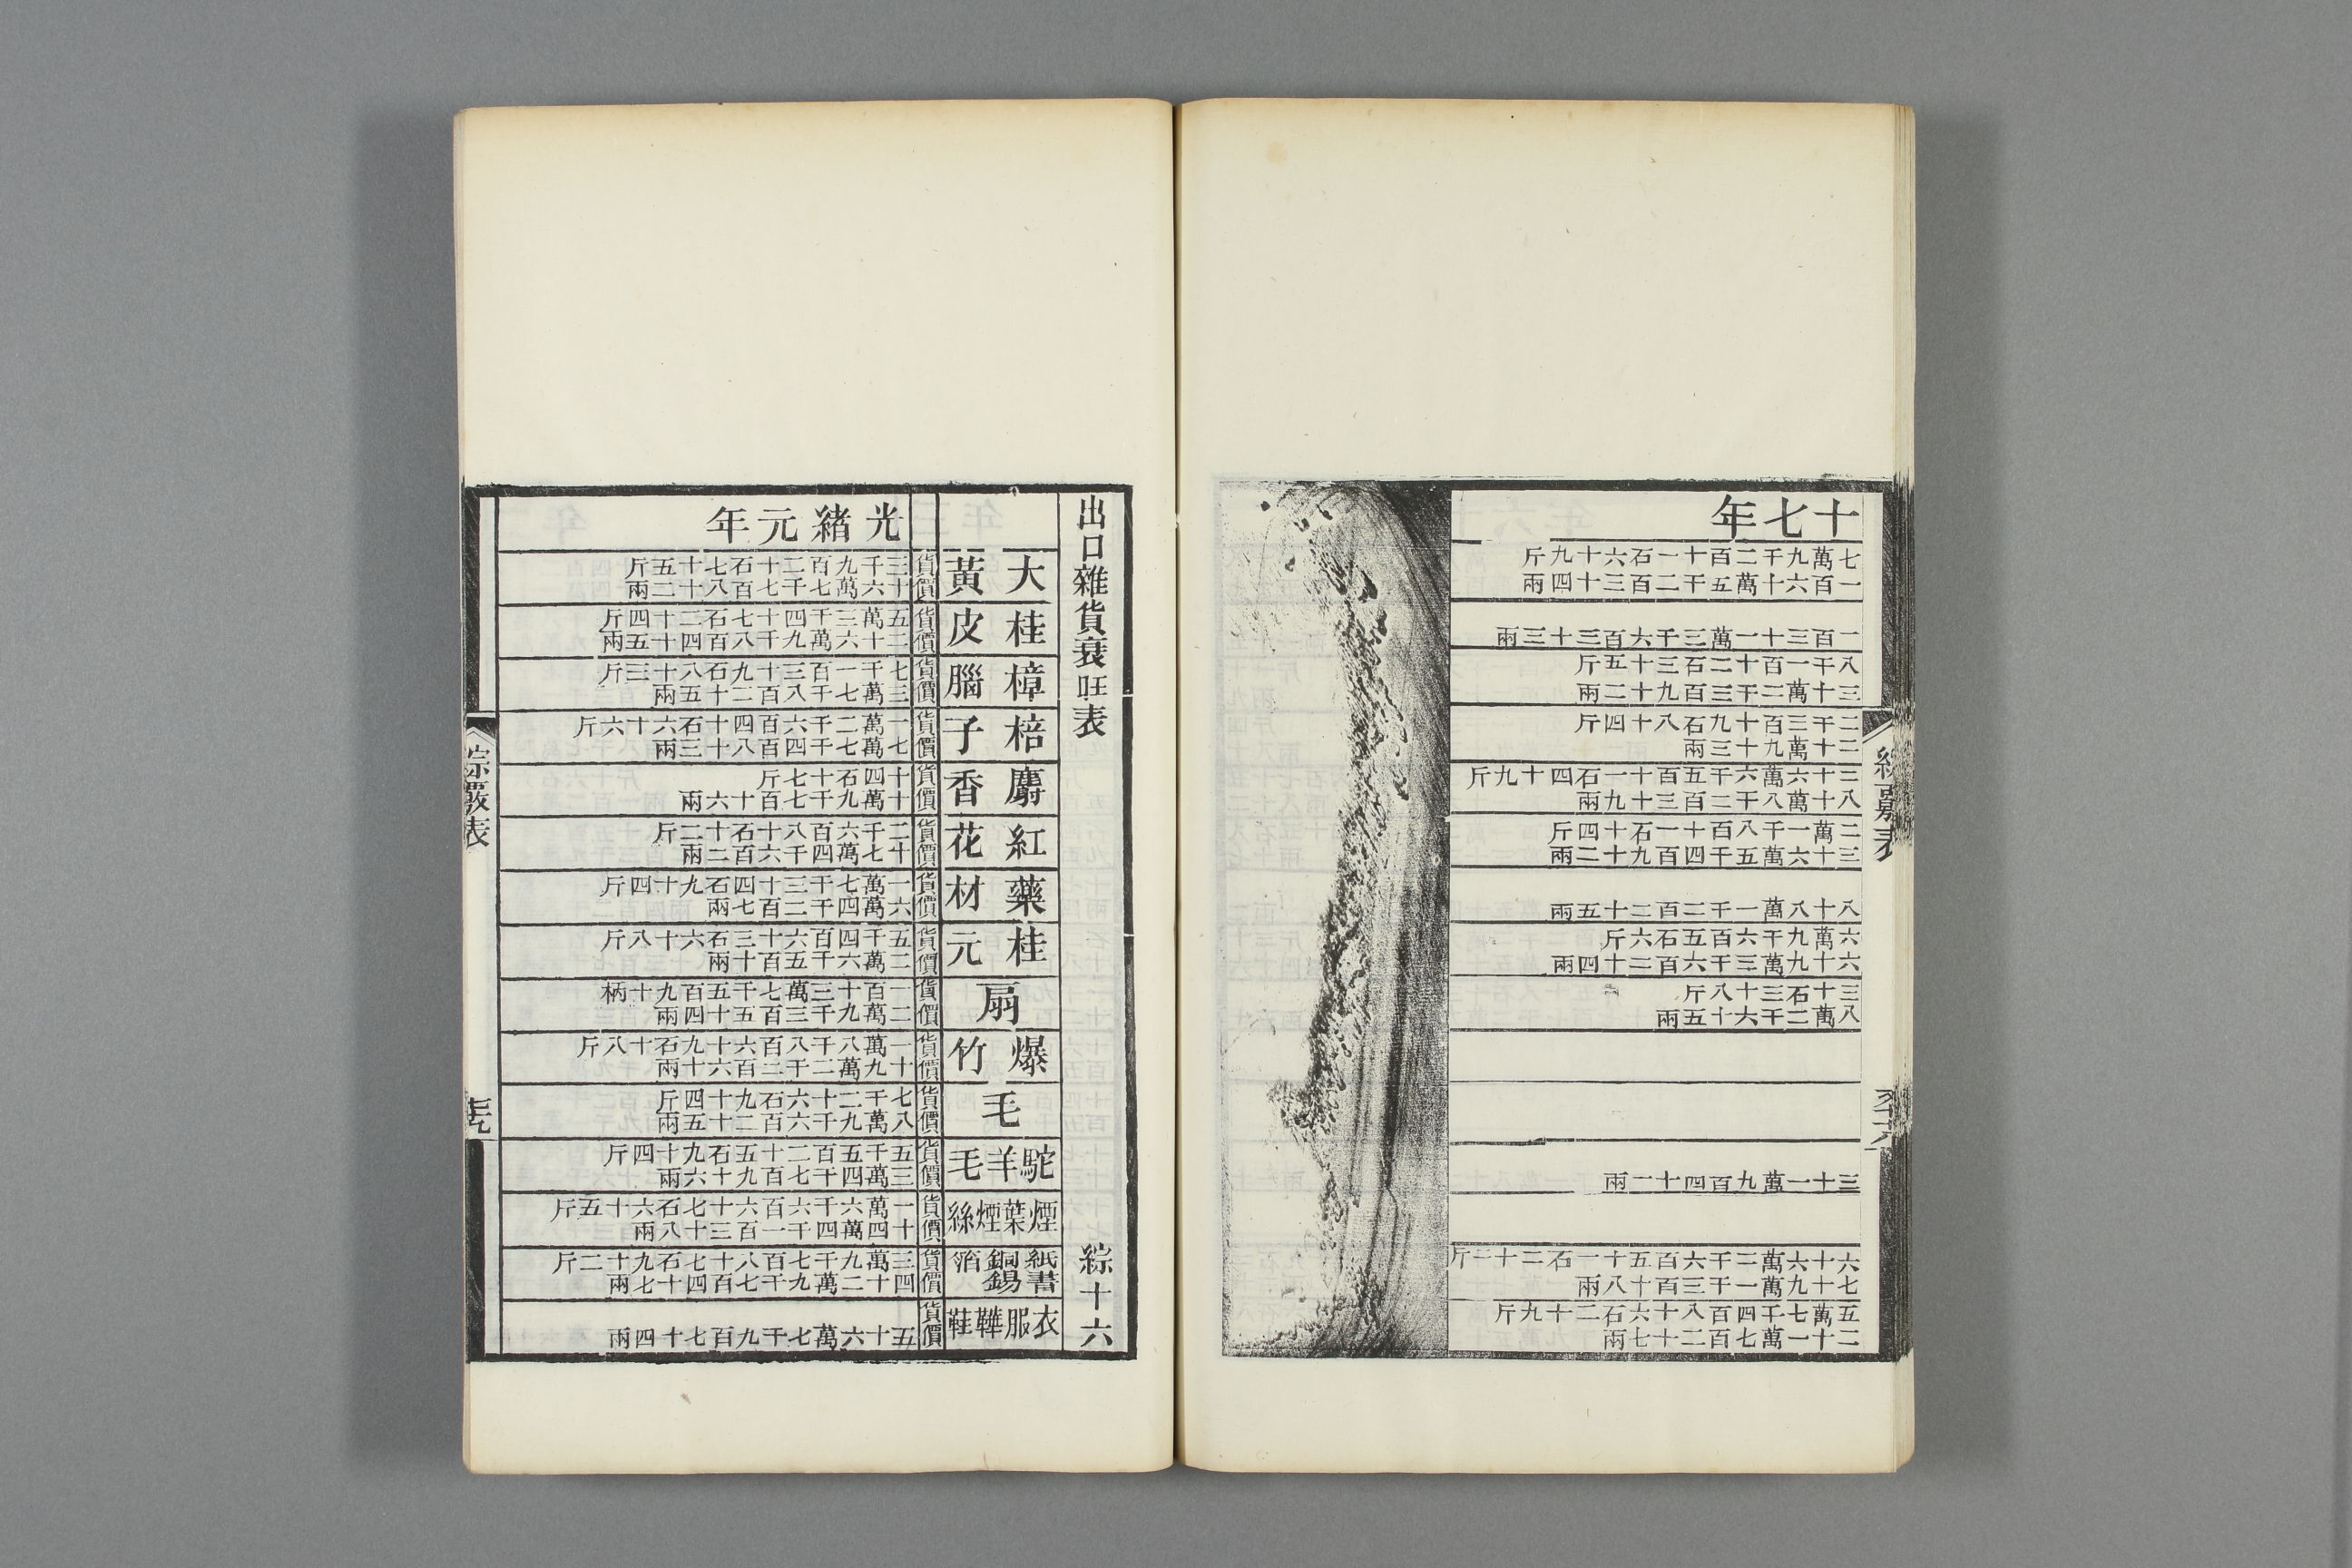 十七年
七萬九千二百十一石六十九斤
一百六十萬五千二百三十四兩
一百三十一萬三千六百三十三兩
八千一百十二石三十五斤
三十萬二千三百九十二兩
二千三百十九石八十四斤
二十萬九十三兩
三十六萬六千五百十一石四十九斤
八十萬八千二百三十九兩
二萬一千八百十一石十四斤
三十六萬五千四百九十二兩
八十八萬一千二百二十五兩
六萬九千六百五石六斤
六十九萬三千六百二十四兩
三十石三十八斤
八萬二千六十五兩
三十一萬九百四十一兩
六十六萬二千六百五十一石二十二斤
七十九萬一千三百十八兩
五萬七千四百八十六石二十九斤
二十一萬七百二十七兩
出口雜貨衰旺表 綜十六
光緒元年
大黃
貨 三千九百二十石七十五斤
價 十六萬七千七百八十二兩
桂皮
貨 五萬三千四十七石二十四斤
價 二十六萬九千八百四十五兩
樟腦
貨 七千一百三十九石八十三斤
價 三萬七千八百二十五兩
棓子
貨 一萬二千六百四十石六十六斤
價 七萬七千四百八十三兩
麝香
貨 十四石十七斤
價 十萬九千七百十六兩
紅花
貨 二千六百八十石十二斤
價 十七萬四千六百二兩
藥材
貨 一萬七千三十四石九十四斤
價 六萬四千二百七兩
桂元
貨 五千四百六十三石六十八斤
價 二萬六千五百十兩
扇
貨 一百十三萬七千五百九十柄
價 二萬九千三百五十四兩
爆竹
貨 一萬八千八百六十九石十八斤
價 十九萬二千二百六十兩
毛
貨 七千二十六石九十四斤
價 八萬九千六十五兩
駝羊毛
貨 五千五百二十五石九十四斤
價 三萬四千七百九十六兩
煙葉煙絲
貨 一萬六千六百六十七石六十五斤
價 十四萬四千一百三十八兩
紙書銅錫箔
貨 三萬九千七百八十七石九十二斤
價 四十二萬九千七百四十七兩
衣服韡鞋
貨
價 五十六萬七千九百七十四兩
綜覈表